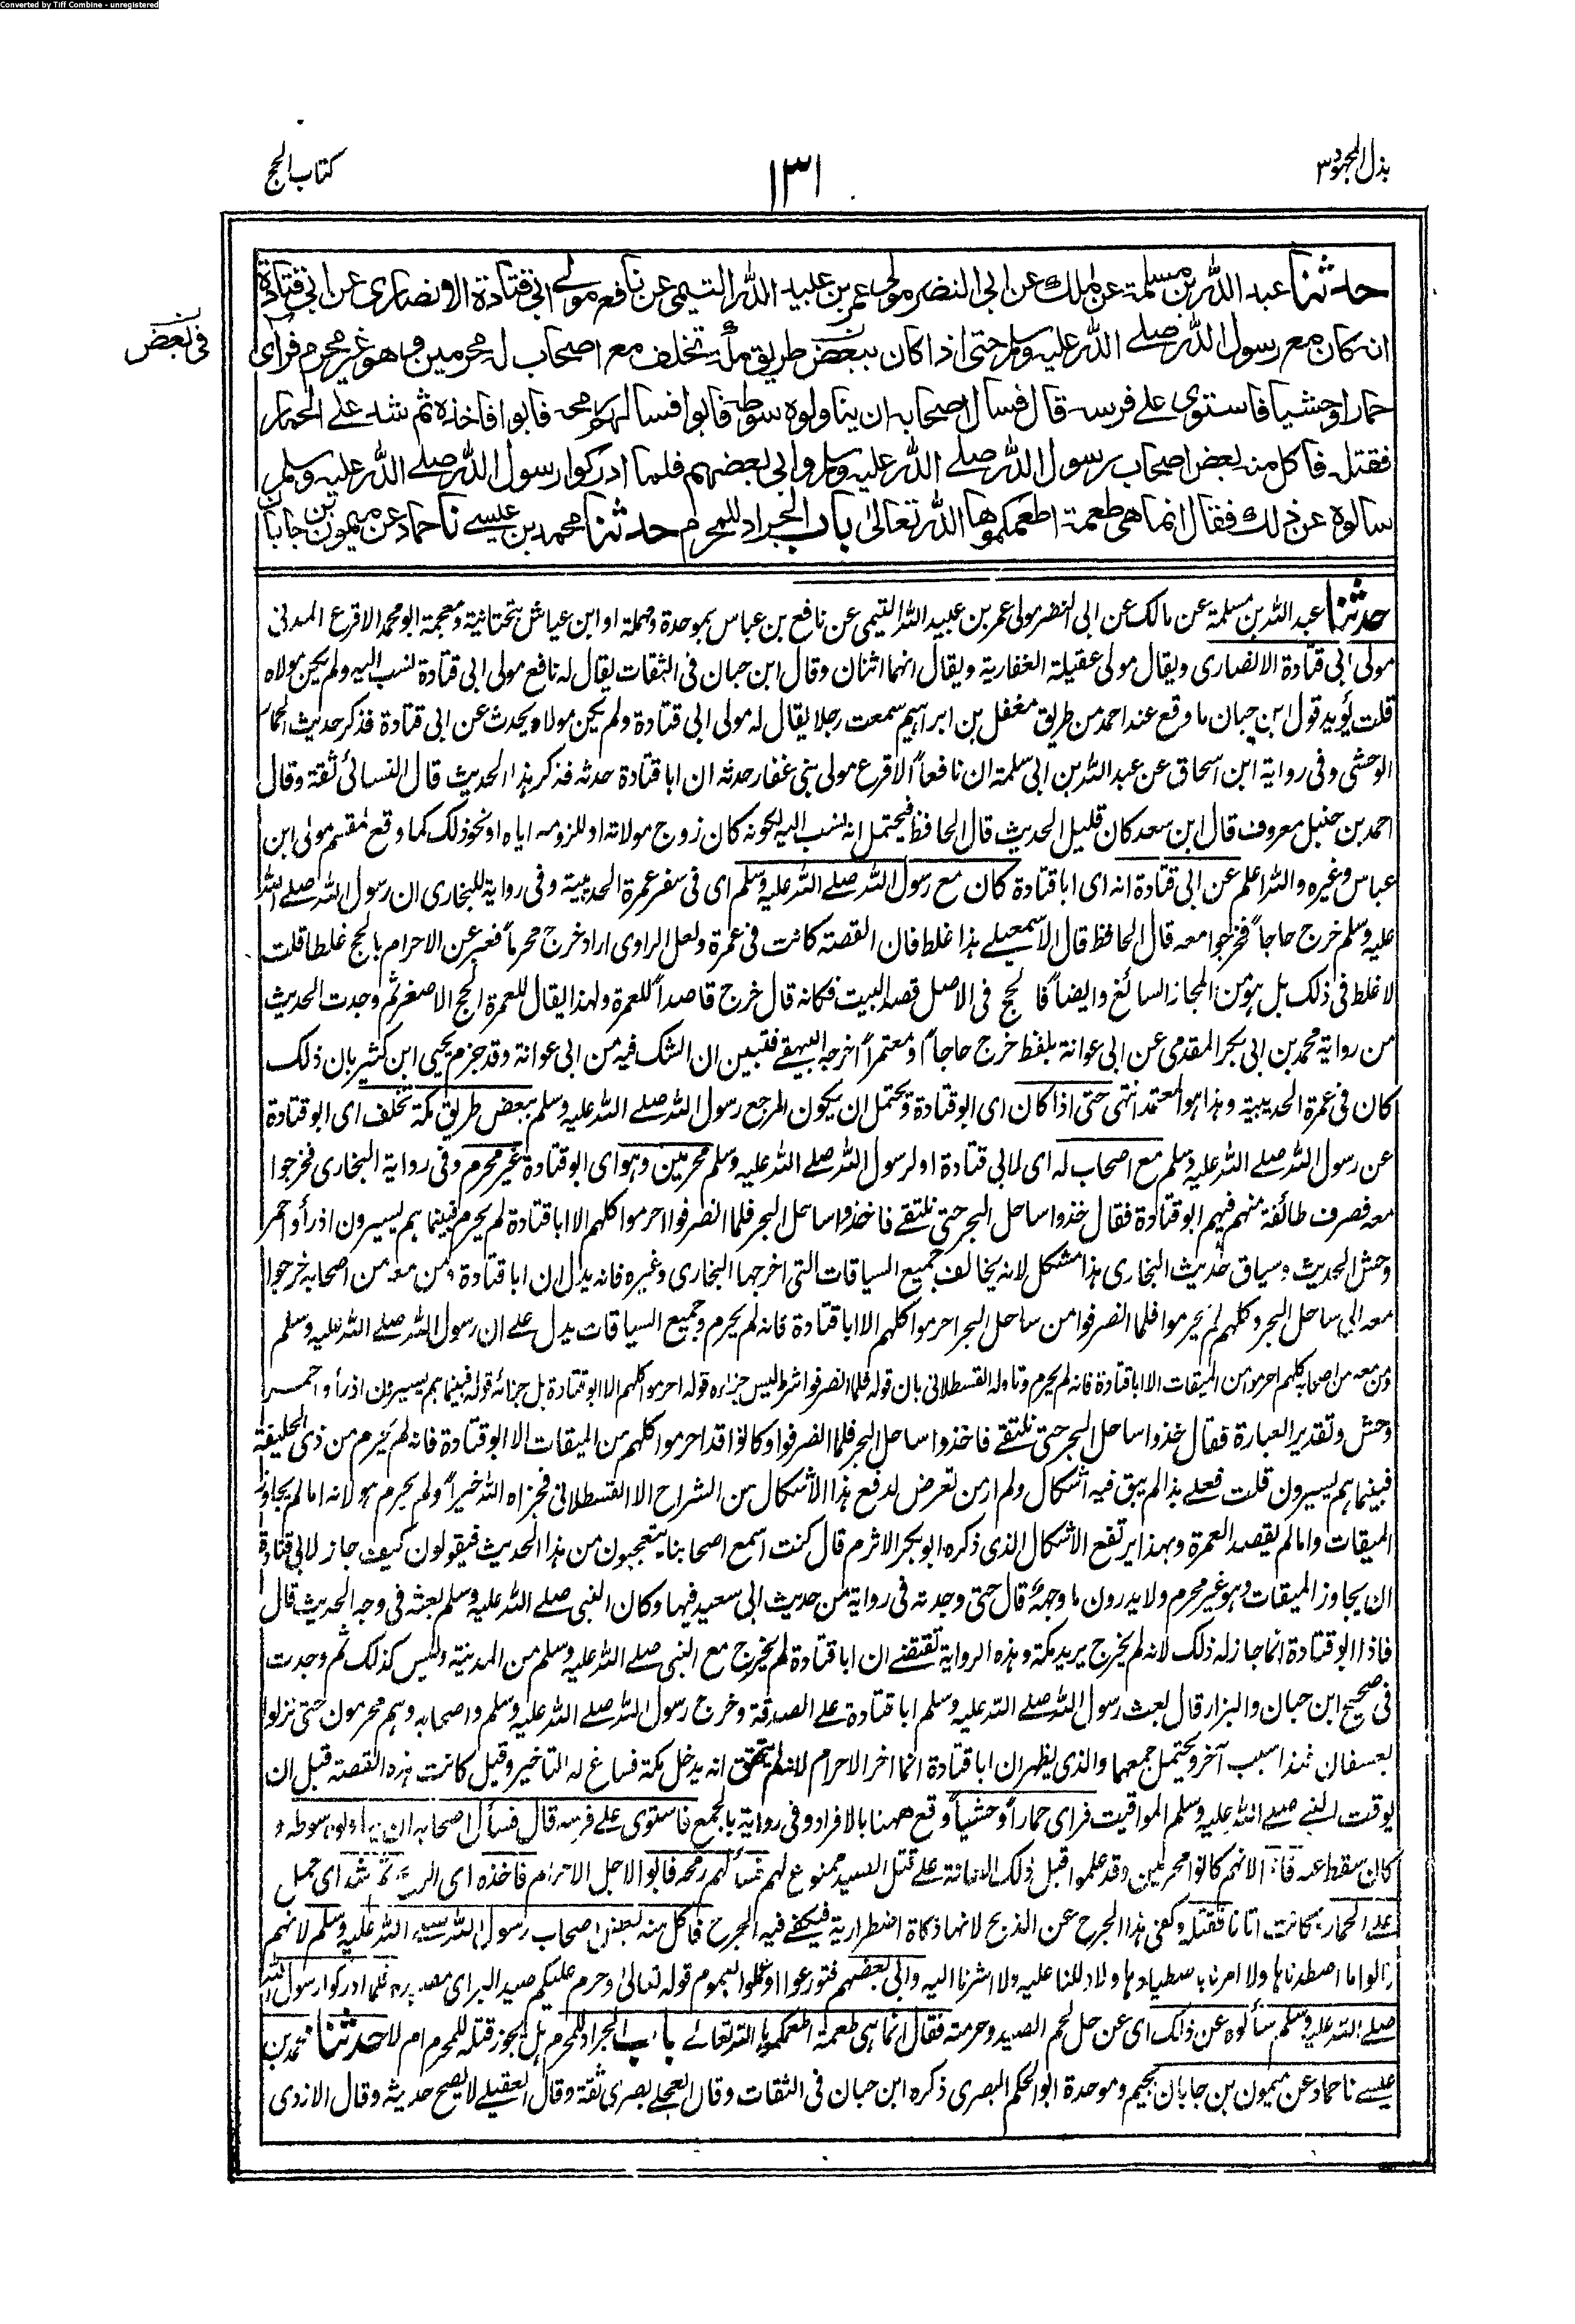 Converted by Tiff Combine - unregistered
بذل المجهود ٣
١٣١
كتاب الحج
حدثنا عبد الله بن مسلمة عن ملك عن ابي النضر مولى عمر بن عبيد الله التيمي عن نافع مولى ابي قتادة الانصاري عن ابي قتادة
انه كان مع رسول الله صلى الله عليه وسلم حتى اذا كان ببعض طريق مكة تخلف مع اصحاب له محرمين وهو غير محرم فرأى
في بعض
حمارا وحشيا فاستوى على فرسه قال فسأل اصحابه ان يناولوه سوطه فابوا فسألهم رمحه فابوا فاخذه ثم شد على الحمار
فقتله فاكل منه بعض اصحاب رسول الله صلى الله عليه وسلم وابى بعضهم فلما ادركوا رسول الله صلى الله عليه وسلم
سالوه عن ذلك فقال انما هي طعمة اطعمكموها الله تعالى باب الجراد للمحرم حدثنا محمد بن عيسى نا حماد عن ميمون بن جابان
حدثنا عبد الله بن مسلمة عن مالك عن ابى النضر مولى عمر بن عبيد الله التيمى عن نافع بن عباس بموحدة ومهملة او ابن عياش بتحتانية ومعجمة ابو محمد الاقرع المدنى
مولى ابى قتادة الانصارى ويقال مولى عقيلة الغفارية ويقال انهما اثنان وقال ابن حبان فى الثقات يقال له نافع مولى ابى قتادة نسب اليه ولم يكن مولاه
قلت يؤيد قول ابن حبان ما وقع عند احمد من طريق مغفل بن ابراهيم سمعت رجلا يقال له مولى ابى قتادة ولم يكن مولاه يحدث عن ابى قتادة فذكر حديث الحمار
الوحشى وفى رواية ابن اسحاق عن عبد الله بن ابى سلمة ان نافعاً الاقرع مولى بنى غفار حدثه ان ابا قتادة حدثه فذكر هذا الحديث قال النسائى ثقة وقال
احمد بن حنبل معروف قال ابن سعد كان قليل الحديث قال الحافظ فيحتمل انه نسب اليه لكونه كان زوج مولاته او للزومه اياه او نحو ذلك كما وقع لمقسم مولى ابن
عباس وغيره والله اعلم عن ابى قتادة انه اى ابا قتادة كان مع رسول الله صلى الله عليه وسلم اى فى سفر عمرة الحديبية وفى رواية للبخارى ان رسول الله صلى الله
عليه وسلم خرج حاجاً فخرجوا معه قال الحافظ قال الاسمعيلى هذا غلط فان القصة كانت فى عمرة ولعل الراوى اراد خرج محرماً فعبر عن الاحرام بالحج غلطا قلت
لا غلط فى ذلك بل هو من المجاز السائغ وايضاً فالحج فى الاصل قصد البيت فكانه قال خرج قاصداً للعمرة ولهذا يقال للعمرة الحج الاصغر ثم وجدت الحديث
من رواية محمد بن ابى بكر المقدمى عن ابى عوانة بلفظ خرج حاجاً او معتمراً اخرجه البيهقى فتبين ان الشك فيه من ابى عوانة وقد جزم يحيى ابن كثير بان ذلك
كان فى عمرة الحديبية وهذا هو المعتمد انتهى حتى اذا كان اى ابو قتادة ويحتمل ان يكون المرجع رسول الله صلى الله عليه وسلم ببعض طريق مكة تخلف اى ابو قتادة
عن رسول الله صلى الله عليه وسلم مع اصحاب له اى لابى قتادة او لرسول الله صلى الله عليه وسلم محرمين وهو اى ابو قتادة غير محرم وفى رواية البخارى فخرجوا
معه فصرف طائفة منهم فيهم ابو قتادة فقال خذوا ساحل البحر حتى نلتقى فاخذوا ساحل البحر فلما انصرفوا احرموا كلهم الا ابا قتادة لم يحرم فبينما هم يسيرون اذ رأوا حمر
وحش الحديث وسياق حديث البخارى هذا مشكل لانه يخالف جميع السياقات التى اخرجها البخارى وغيره فانه يدل ان ابا قتادة ومن معه من اصحابه خرجوا
معه الى ساحل البحر وكلهم لم يحرموا فلما انصرفوا من ساحل البحر احرموا كلهم الا ابا قتادة فانه لم يحرم وجميع السياقات يدل على ان رسول الله صلى الله عليه وسلم
ومن معه من اصحابه كلهم احرموا من الميقات الا ابا قتادة فانه لم يحرم وتاوله القسطلانى بان قوله فلما انصرفوا شرط ليس جزاءه قوله احرموا كلهم الا ابو قتادة بل جزائه قوله فبينما هم يسيرون اذ رأوا حمر
وحش وتقدير العبارة فقال خذوا ساحل البحر حتى نلتقى فاخذوا ساحل البحر فلما انصرفوا وكانوا قد احرموا كلهم من الميقات الا ابو قتادة فانه لم يحرم من ذى الحليفة
فبينما هم يسيرون قلت فعلى هذا لم يبق فيه اشكال ولم ار من تعرض لدفع هذا الاشكال من الشراح الا القسطلانى فجزاه الله خيراً ولم يحرم هو لانه اما لم يجاوز
الميقات واما لم يقصد العمرة وبهذا يرتفع الاشكال الذى ذكره ابو بكر الاثرم قال كنت اسمع اصحابنا يتعجبون من هذا الحديث فيقولون كيف جاز لابى قتادة
ان يجاوز الميقات وهو غير محرم ولا يدرون ما وجهه قال حتى وجدته فى رواية من حديث ابى سعيد فيها وكان النبى صلى الله عليه وسلم بعثه فى وجه الحديث قال
فاذا ابو قتادة انما جاز له ذلك لانه لم يخرج يريد مكة وهذه الرواية تقتضى ان ابا قتادة لم يخرج مع النبى صلى الله عليه وسلم من المدينة وليس كذلك ثم وجدت
فى صحيح ابن حبان والبزار قال بعث رسول الله صلى الله عليه وسلم ابا قتادة على الصدقة وخرج رسول الله صلى الله عليه وسلم واصحابه وهم محرمون حتى نزلوا
بعسفان فهذا سبب آخر ويحتمل جمعهما والذى يظهر ان ابا قتادة انما اخر الاحرام لانه لم يتحقق انه يدخل مكة فساغ له التاخير وقيل كانت هذه القصة قبل ان
يوقت النبى صلى الله عليه وسلم المواقيت فرأى حماراً وحشياً وقع ههنا بالافراد وفى رواية بالجمع فاستوى على فرسه قال فسأل اصحابه ان يناولوه سوطه و
كان سقط عنه فابوا لانهم كانوا محرمين وقد علموا قبل ذلك ان الاعانة على قتل الصيد ممنوع لهم فسألهم رمحه فابوا لاجل الاحرام فاخذه اى الرمح ثم شد اى حمل
على الحمار وكانت اتانا فقتله وكفى هذا الجرح عن الذبح لانها ذكاة اضطرارية فيكفى فيه الجرح فاكل منه بعض اصحاب رسول الله صلى الله عليه وسلم لانهم
قالوا ما اصطدناها ولا امرنا باصطيادها ولا دللنا عليه ولا اشرنا اليه وابى بعضهم فتورعوا او عملوا بعموم قوله تعالى وحرم عليكم صيد البر اى مصيده فلما ادركوا رسول الله
صلى الله عليه وسلم سألوه عن ذلك اى عن حل لحم الصيد وحرمته فقال انما هى طعمة اطعمكموها الله تعالى باب الجراد للمحرم هل يجوز قتله للمحرم ام لا حدثنا محمد بن
عيسى نا حماد عن ميمون بن جابان بجيم وموحدة ابو الحكم البصرى ذكره ابن حبان فى الثقات وقال العجلى بصرى ثقة وقال العقيلى لا يصح حديثه وقال الازدى